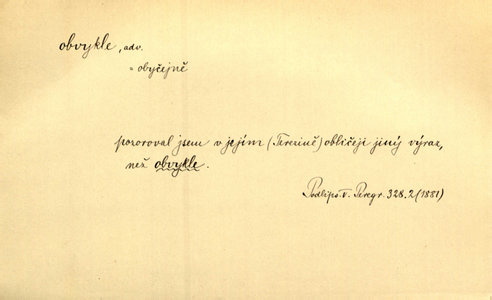 obvykle, adv.
= obyčejně
pozoroval jsem v jejím (Terezině) obličeji jiný výraz,
než obvykle.
Podlips. V. Peregr. 328.2 (1881)